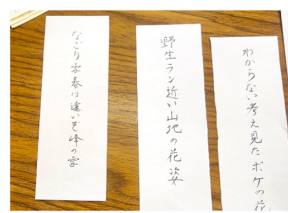 わからない考え見たボケの花
野生ラン近い山地の花姿
なごり雪春は遠いぞ峰の雪